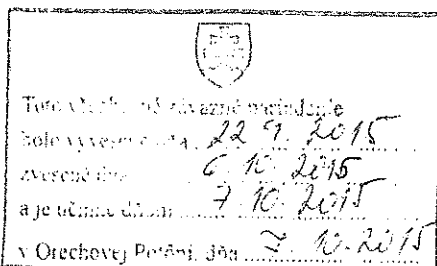 Toto všeobecné záväzné nariadenie
bolo vyvesené dňa 22. 9. 2015
zvesené dňa 6. 10. 2015
a je účinné dňom 7. 10. 2015
v Orechovej Potôni, dňa 7. 10. 2015